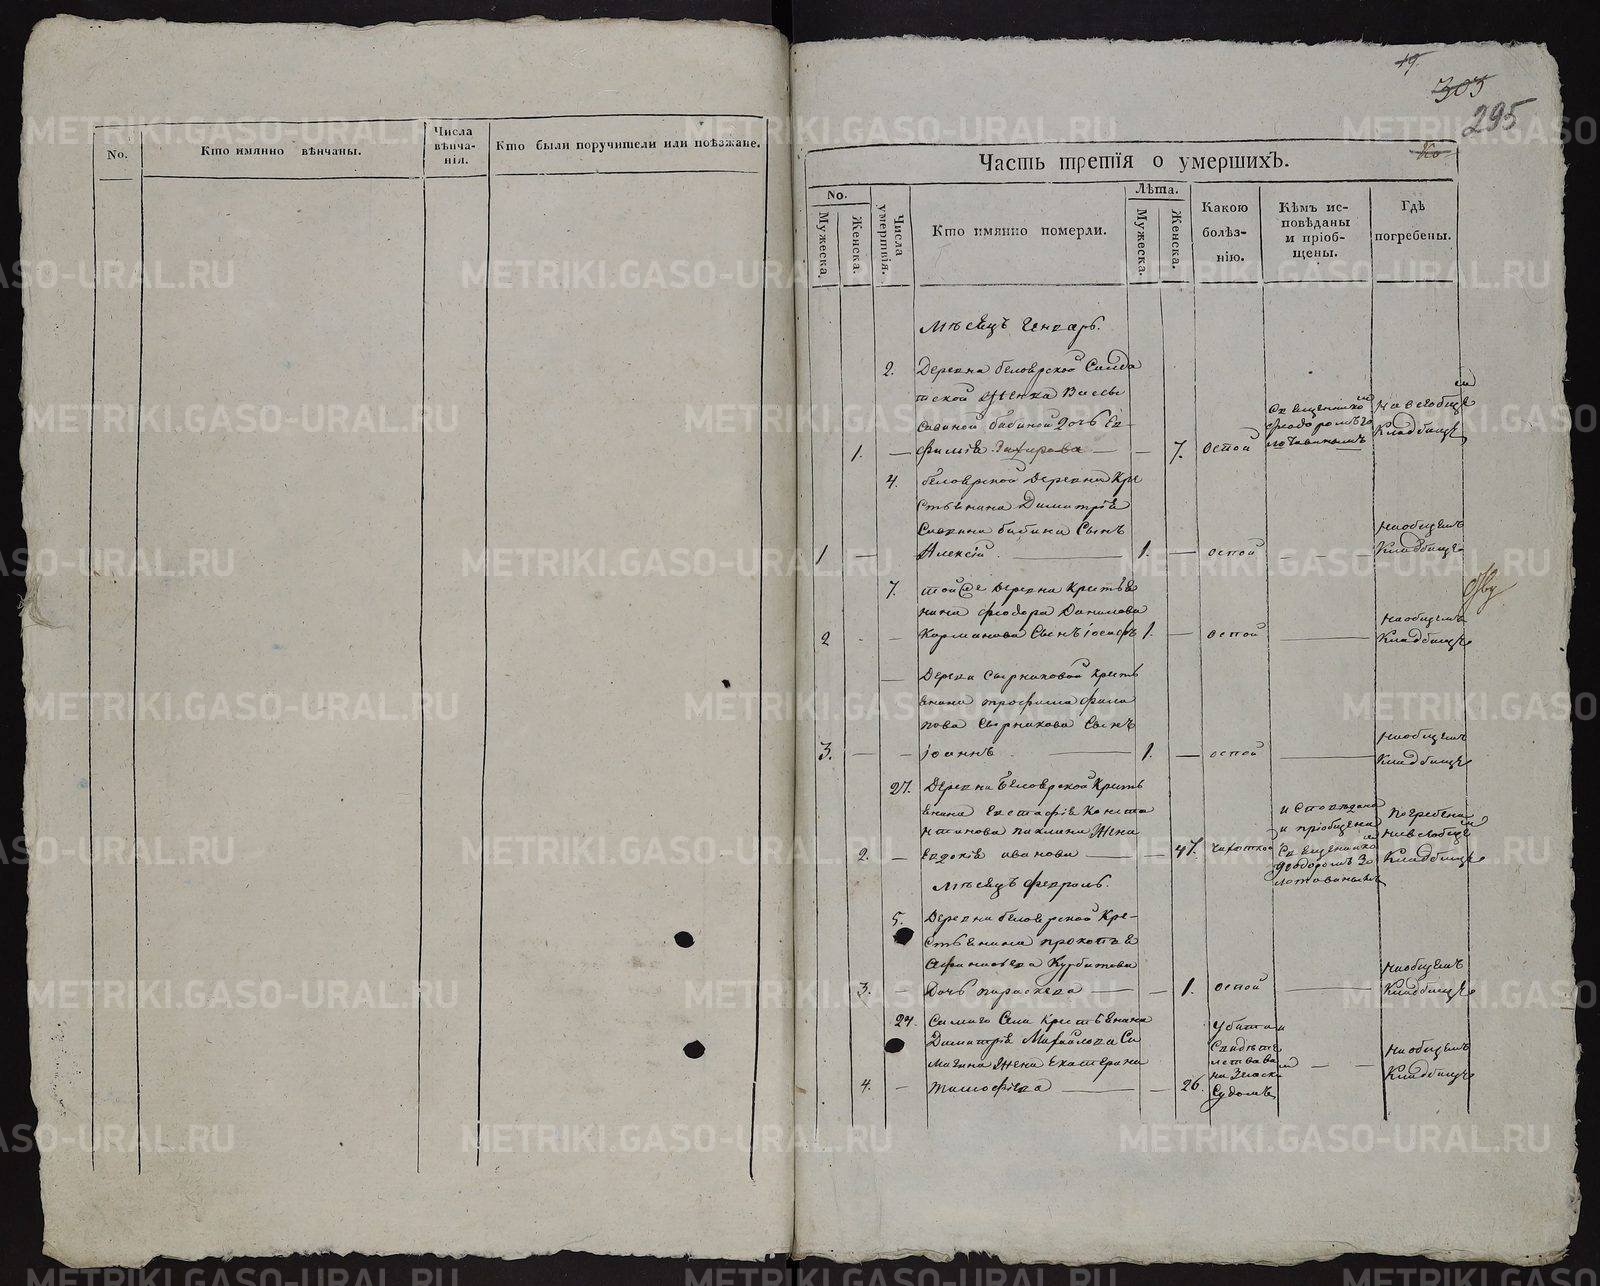 No.
Кто имянно вѣнчаны.
Числа вѣнча-нія.
Кто были поручители или поѣзжане.
19
303
295
Часть третія о умершихъ.
No.
Мужеска.
Женска.
Числа умертвія.
Кто имянно померли.
Лѣта.
Мужеска.
Женска.
Какою болѣз-нію.
Кѣмъ ис-повѣданы и пріоб-щены.
Гдѣ погребены.
Мѣсяцъ Генварь.
2. Деревни беловрской Салда
тской женка Вассы
Савиной бабиной дочь Ев
1. — фимія — — 7. оспой
Священником Феодоромъ
кладбище
4. беловрской деревни Кре
стьянина Димитрія
Савина бабина Сынъ
1 — Алексій — 1. — оспой — на общемъ кладбище
7. той же деревни Кресть
янина феодора Данилова
2 — Корманова Сынъ іосифъ 1. — оспой — на общемъ кладбище
— Деревни Сырниковой Кресть
янина трофима фили
пова Сырникова Сынъ
3. — — іоаннъ — 1. — оспой — на общемъ кладбище
27. Деревни Беловрской Кресть
янина Евстафія Конста
нтинова жена
2. — Евдокія иванова — — 47. чихоткой
исповедана и пріобщена Священником Феодоромъ
погребена кладбище
Мѣсяцъ февраль.
5. Деревни беловрской Кре-
стьянина прокопья
Афанасьева Курбатова
3. — Дочь параскева — — 1. оспой — на общемъ кладбище
24. Самаго Села Крестьянина
Димитрія Михайлова Са
жена Екатерина
4. — Тимофіева — — 26.
убита и
Свидѣте
льствова
на Земски
Судомъ
— — на общемъ кладбище
METRIKI.GASO-URAL.RU